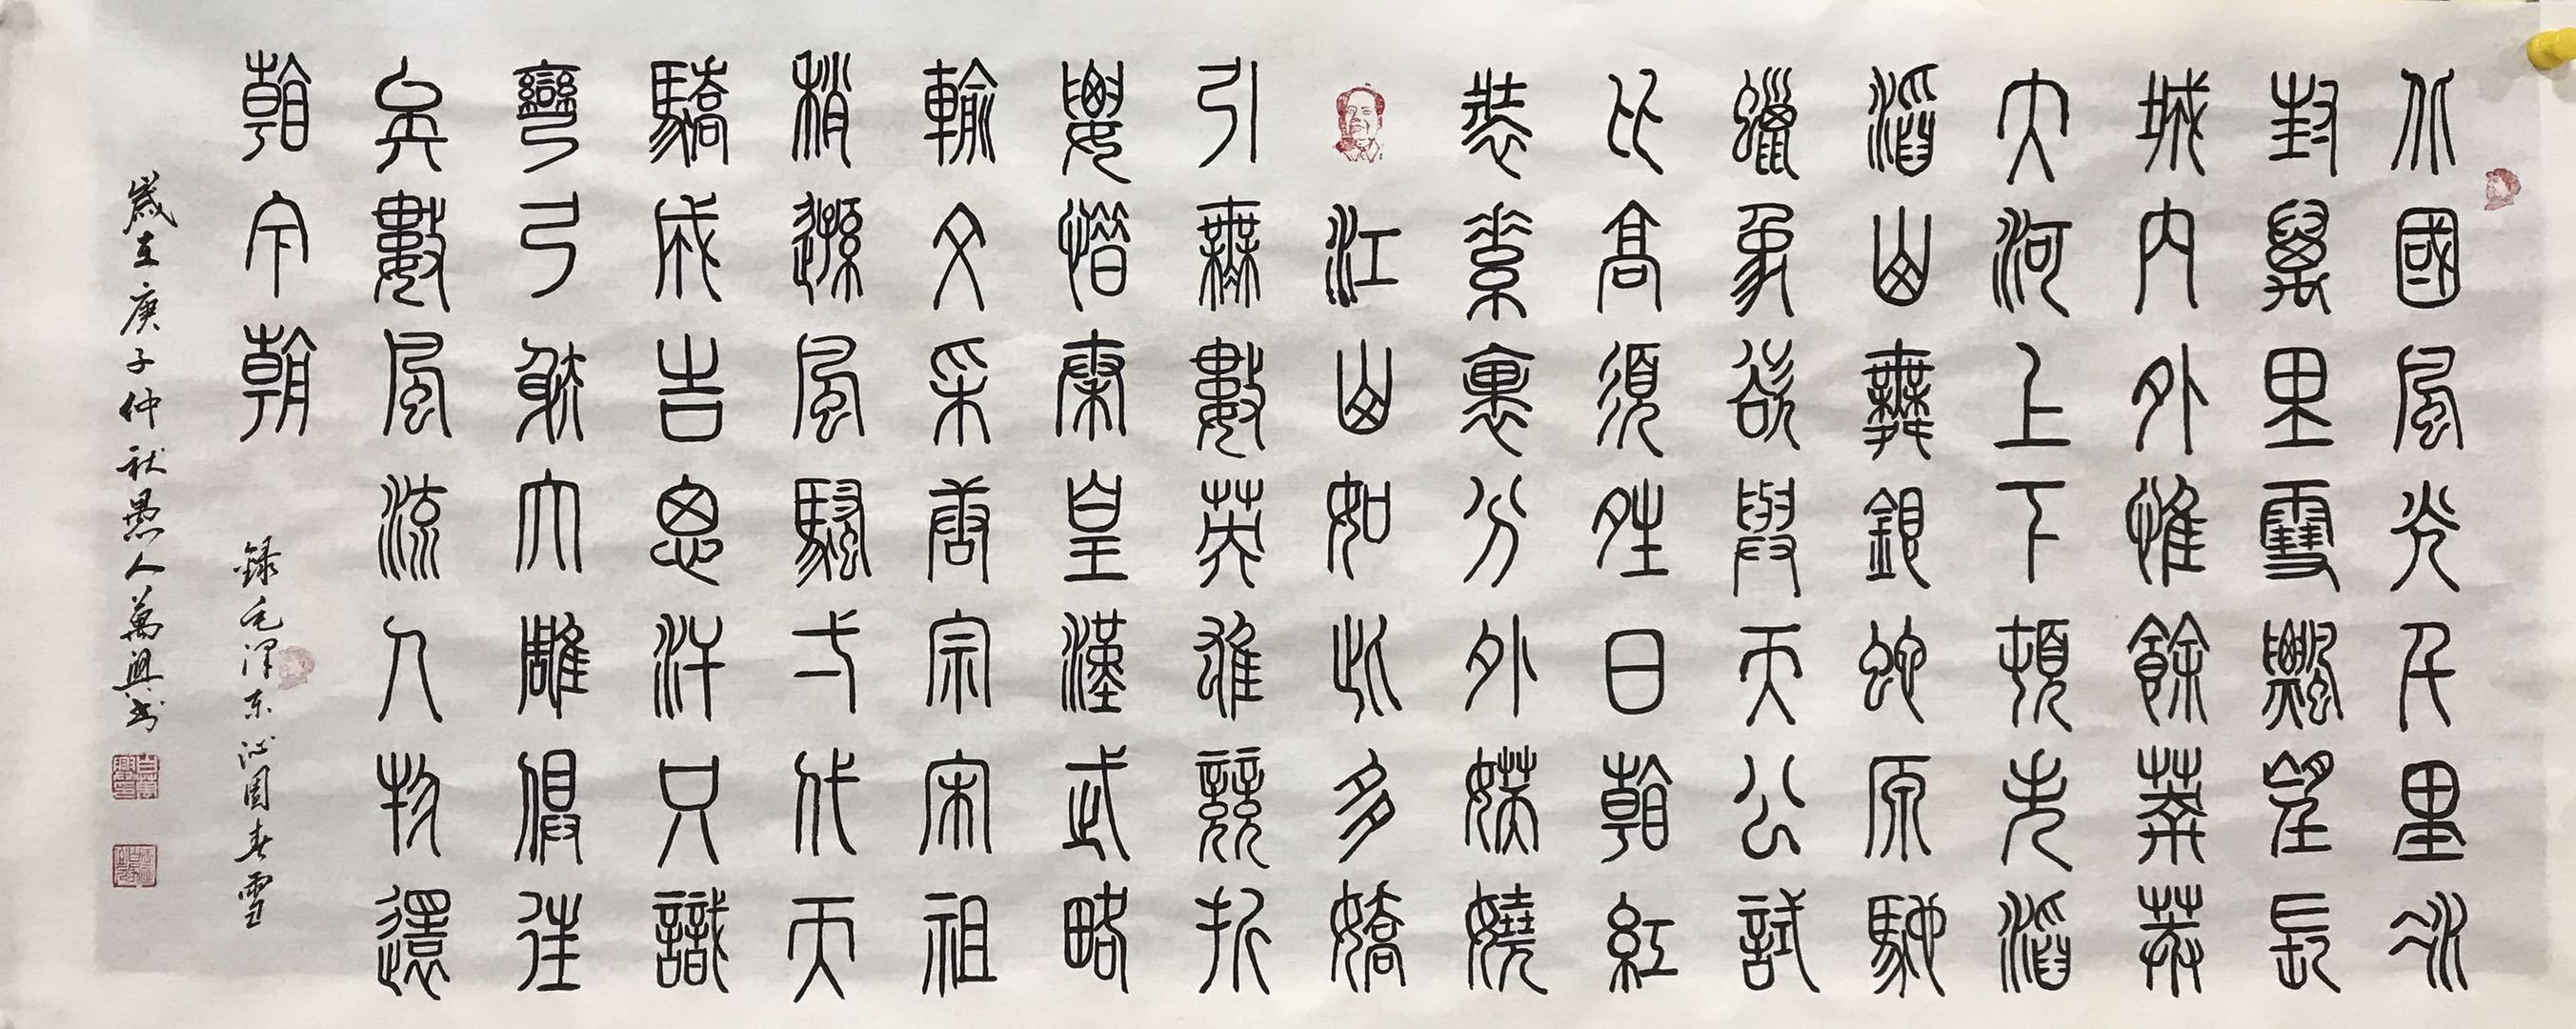 北國風光千里冰
封萬里雪飄望長
城內外惟餘莽莽
大河上下頓失滔
滔山舞銀蛇原馳
蠟象欲與天公試
比高須夝日看紅
裝素裹分外媄嬈
江山如此多嬌
引無數英雄競折
腰惜秦皇漢武略
輸文采唐宗宋祖
稍遜風騷弌代天
驕成吉思汗只識
彎弓射大雕俱往
矣數風流人物還
看今朝
録毛澤东沁園春雪
歲在庚子仲秋愚人萬興书